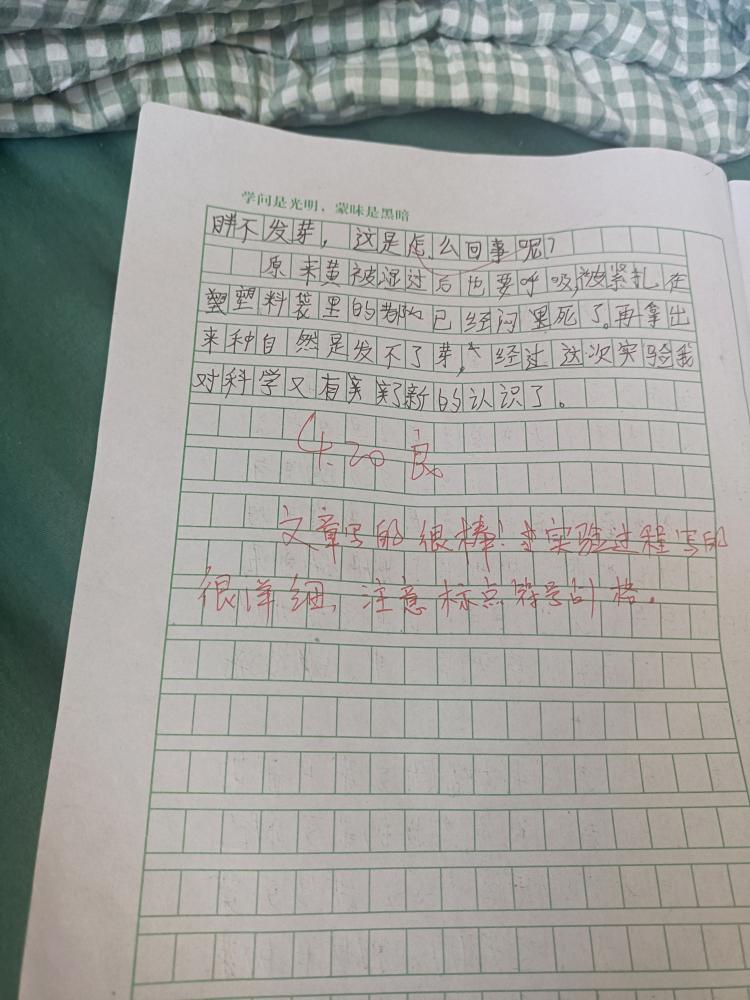 学问是光明，蒙昧是黑暗
胖不发芽，这是怎么回事呢？
原来黄被湿过后也要呼吸，被紧扎在
塑塑料袋里的都队已经闷里死了。再拿出
来种自然是发不了芽，经过这次实验我
对科学又有了新的认识了。
4.20 良。
文章写的很棒！实验过程写的
很详细，注意标点符号占格。